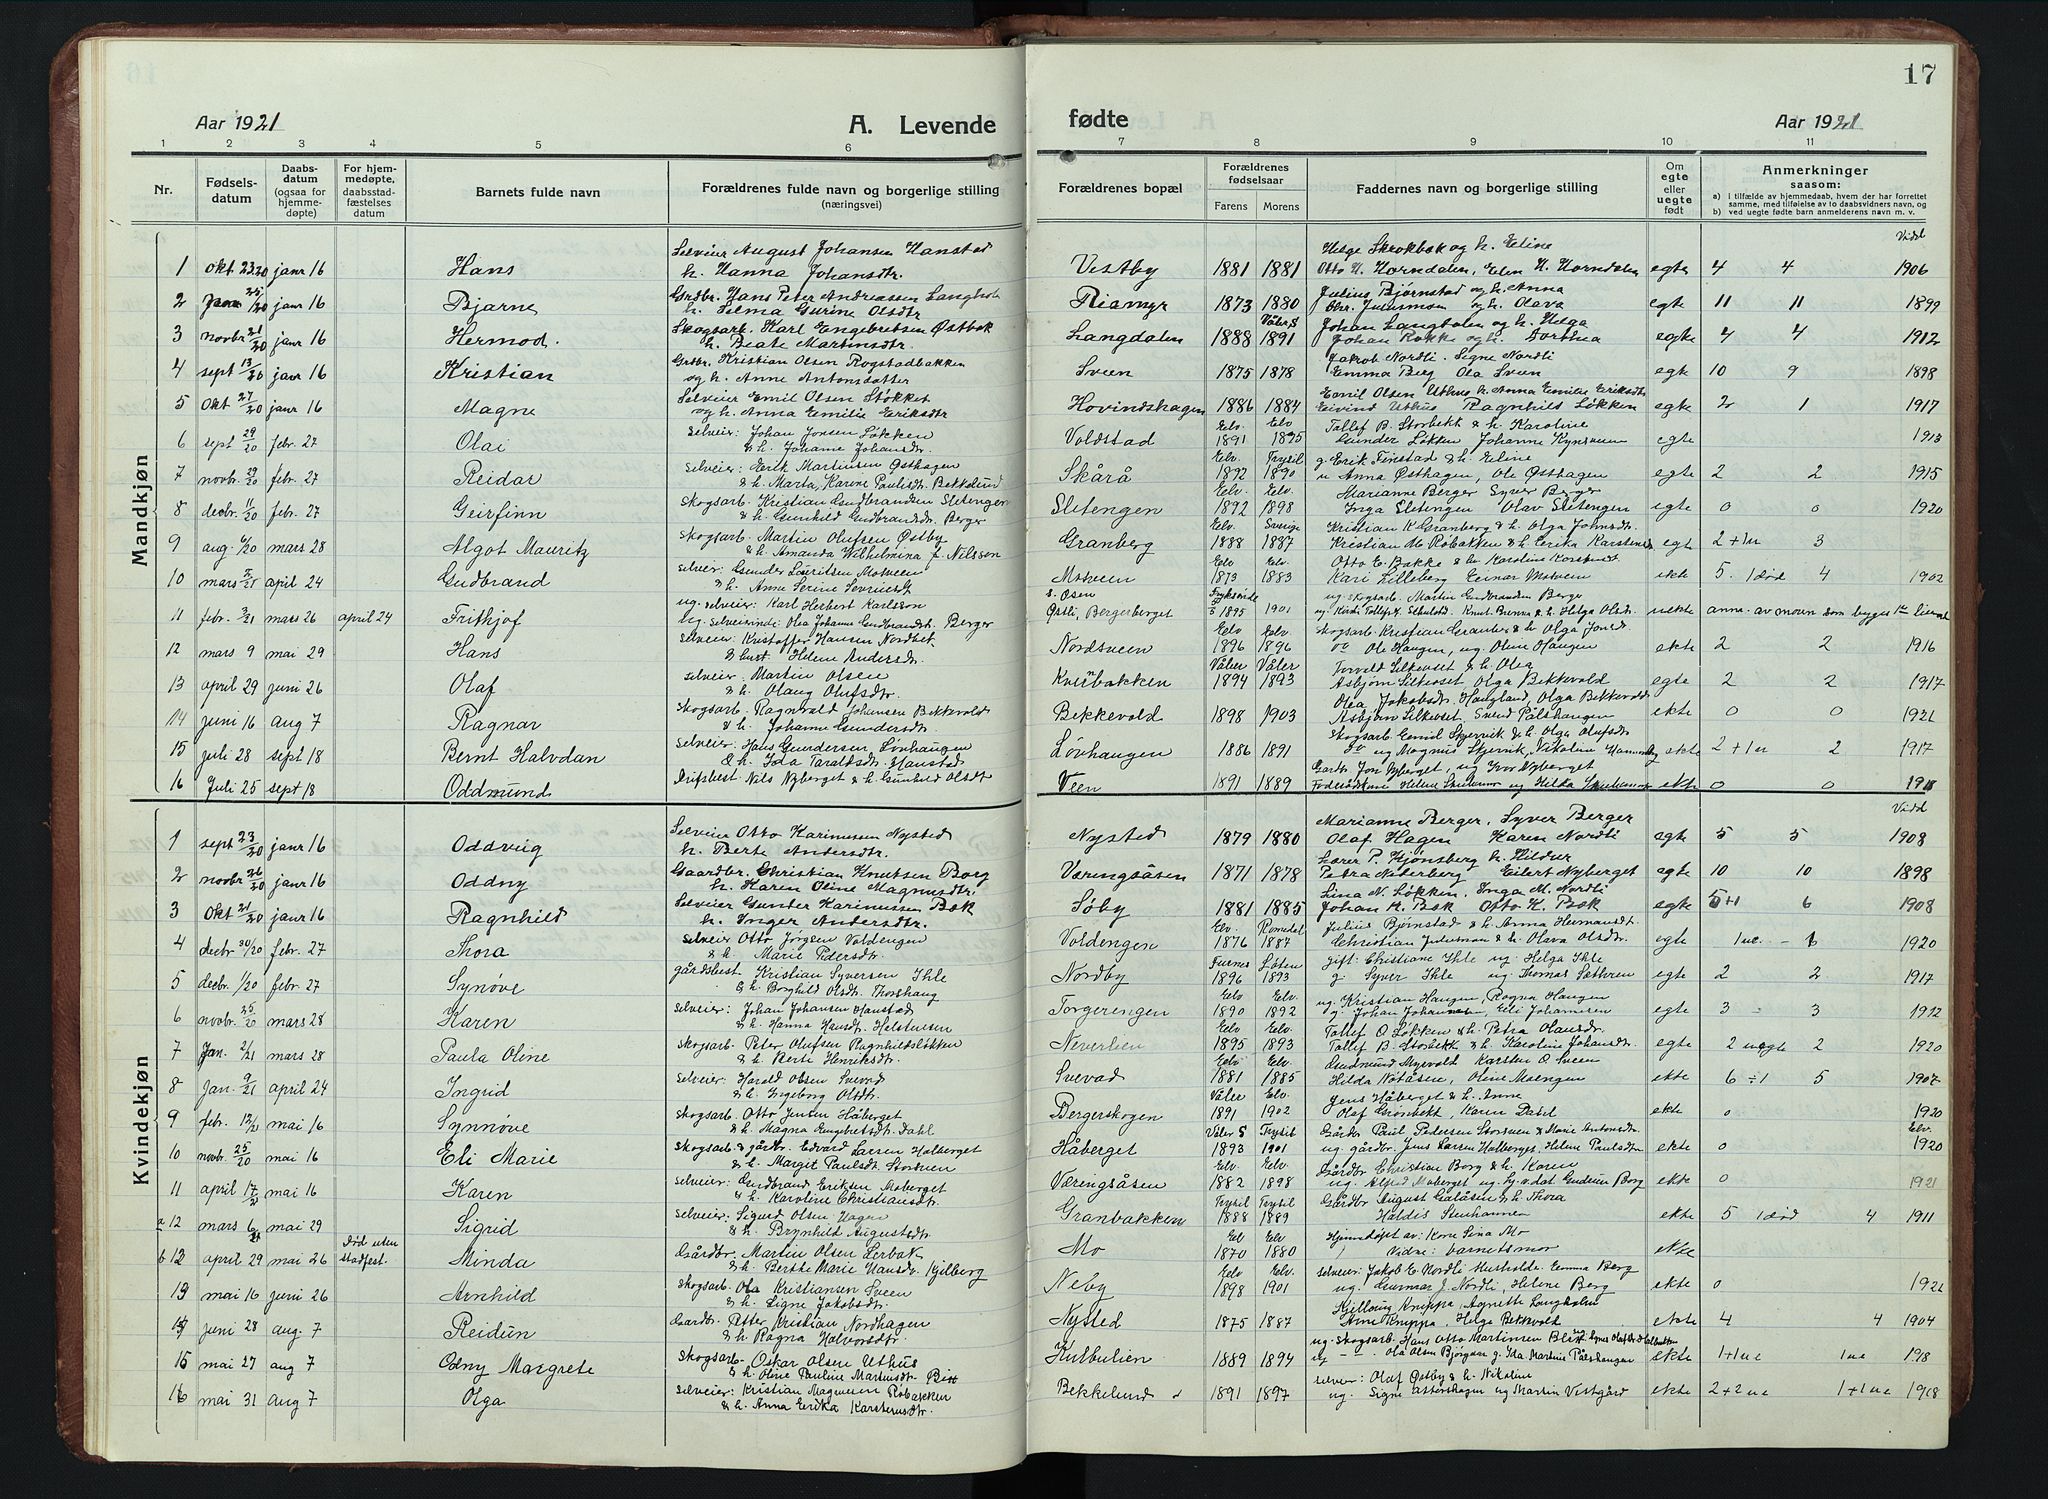 17
Aar 1921
A. Levende
fødte
Aar 1921
1 2 3 4 5 6 7 8 9 10 11
Nr.
Fødsels-
datum
Daabs-
datum
(ogsaa for
hjemme-
døpte)
For hjem-
medøpte,
daabsstad-
fæstelses
datum
Barnets fulde navn
Forældrenes fulde navn og borgerlige stilling
(næringsvei)
Forældrenes bopæl
Forældrenes
fødselsaar
Farens Morens
Faddernes navn og borgerlige stilling
Om
egte
eller
uegte
født
Anmerkninger
saasom:
a) i tilfælde av hjemmedaab, hvem der har forrettet
samme, med tilføielse av to daabsvidners navn, og
b) ved uegte fødte barn anmelderens navn m. v.
Mandkjøn
Viddl
Selveier August Johansen Hanstad Helge Skrokbæk og h. Eline
1 Okt 23 20 janr 16 Hans h. Hanna Johansdtr. Vestby 1881 1881 Otto H. Horndalen, Elen H. Horndalen egte 4 4 1906
Grdbr. Hans Peter Andreassen Langholm Julius Bjørnstad og h. Anna
2 janr 16 Bjarne h. Selma Gurine Olsdtr Riamyr 1873 1880 Chr. Juulsmon og h. Olava egte 11 11 1899
Skogsarb. Karl Engebretsen Østbæk Våler S Johan Langdalen og h. Helga
3 novbr 21/20 janr 16 Hermod. h. Beate Martinsdtr. Langdalen 1888 1891 Johan Rokke og h. Dorthea egte 4 4 1912
Grdbr. Kristian Olsen Rogstadbakken Jakob Nordli. Signe Nordli
4 sept 13/20 janr 16 Kristian og h. Anne Antonsdatter Sveen 1875 1878 Emma Berg Ola Sveen egte 10 9 1898
Selveier Emil Olsen Støkket Emil Olsen Uthus h. Anna Emilie Eriksdtr
5 Okt 27/20 janr 16 Magne og h. Anna Emilie Eriksdtr Hovindshagen 1886 1884 Eivind Uthus Ragnhild Løkken egte 2 1 1917
selveier: Johan Jonsen Løkken Elv. Elv Tallef B. Storbekk & h. Karoline
6 sept 29/20 febr. 27 Olai & h. Johanne Johansdtr. Voldstad 1891 1895 Gunder Løkken Johanne Kynsveen egte 1913
selveier: Erik Martinsen Østhagen Elv. Trysil g. Erik Finstad & h. Eline
7 novbr. 29/20 febr. 27 Reidar & h. Marta, Karene Paulsdtr. Bekkelund Skårå 1892 1890 u Anna Østhagen, Ole Østhagen egte 2 2 1915
skogsarb. Kristian Gudbrandsen Sletengen Elv. Elv. Marianne Berger Syver Berger
8 decbr. 11/20 febr. 27 Geirfinn & h. Gunhild Gudbrandsdtr. Berger Sletengen 1892 1898 Inga Sletengen Olav Sletengen egte 0 0 1920
skogsarb. Martin Olufsen Østby Elv. Sverige Kristian K. Granberg & h. Olga Johnsdtr.
9 aug. 6/20 mars 28 Algot Mauritz & h. Amanda Wilhelmina f. Nilssen Granberg 1888 1887 Kristian M. Røbakken & h. Erika Karstensd egte 2 + 1u 3
selveier: Gunder Lauritsen Motveen Elv. Elv. Otto E. Bakke & h. Karoline
10 mars april 24 Gudbrand & h. Anne Serine Motveen 1873 1883 Kari Lilleberg Einar Motveen ekte 5. 1 død 4 1902
ug. selveier: Karl Herbert Karlsson s. Osen ug skogsarb. Martin Gudbrandsen Berge
11 febr. 3/21 mars 26 april 24 Frithjof ug. selveierinde Olea Johanne Gudbrandsdtr. Berger Østli Bergerberget 1895 1901 uekte
selveier: Kristoffer Hansen Nordhet Elv Elv. skogsarb. Kristian Granberg & h. Olga Jonsd
12 mars 9 mai 29 Hans & hust. Helene Andersdtr. Nordsveen 1896 1896 Ole Haugen, ug. Oline Haugen ekte 2 2 1916
selveier: Martin Olsen Våler Våler Torvald Silkeset & h. Olea
13 april 29 juni 26 Olaf & h. Olaug Olufsdtr. Kvernbakken 1894 1893 Asbjørn Silkeset Olga Bekkevold egte 2 2 1917
skogsarb. Ragnvald Johansen Bekkevold Olea Jakobsdtr. Haugland, Olga Bekkevold
14 juni 16 aug 7 Ragnar & h. Johanne Gundersdtr. Bekkevold 1898 1903 Asbjørn Silkeset, Svend Pålshaugen ekte 0 0 1921
selveier: Hans Gundersen Løvhaugen Skogsarb Emil Skjervik & h. Olga Olufsdtr
15 juli 28 sept 18 Bernt Halvdan & h. Ida Taraldsdtr. Hanstad Løvhaugen 1886 1891 ug Magnus Skjervik, Nikoline ekte 2 + 1u 2 1917
Driftsbest. Nils Nyberget & h. Gunhild Olsdt Gardbr Jon Nyberget, ug Ivar Nyberget
16 Juli 25 sept 18 Oddmund Veen 1891 1889 ekte 0 0 1918
Kvindekjøn
Viddl
Selveier Otto Karinusen Nysted Marianne Berger, Syver Berger
1 sept 23/20 janr 16 Oddveig h. Berte Andersdtr. Nysted 1879 1880 Olaf Hagen Karen Nordli egte 5 5 1908
Gaardbr. Christian Knutsen Borg Lærer P. Kjønsberg h. Hildur
2 novbr 26/20 janr 16 Oddny h. Karen Oline Magnusdtr. Væringsåsen 1871 1878 Petra Nyberg Eilert Nyberget egte 10 10 1898
Selveier Gunder Karinussen Bæk Lina N. Løkken, Inga M. Nordli
3 Okt 21/20 janr 16 Ragnhild h. Inger Andersdtr. Søby 1881 1885 Johan K. Bæk Otto K. Bæk egte 5+1 6 1908
selveier Otto Jørgsen Voldengen Elv. Romedal Julius Bjørnstad & h. Anna Hermansdtr.
4 decbr 30/20 febr. 27 Thora & h. Marie Pedersdtr. Voldengen 1876 1887 Christian Julusmoen & h. Olava Olsdtr. egte 1 ue. - 6 1920
gårdsbest Kristian Syversen Ihle Furnes Løten gift: Christiane Ihle ug Helga Ihle
5 decbr. 1/20 febr. 27 Synøve & h. Borghild Olsdtr. Thorshaug Nordby 1896 1893 g. Syver Ihle ug Thomas Sætheren egte 2 2 1917
selveier: Johan Johansen Hanstad Elv Elv. ug. Kristian Haugen, Ragna Haugen
6 novbr. 25/20 mars 28 Karen & h. Hanna Hansdtr. Helstuen Torgerengen 1890 1892 g. Johan Johannesen, Eli Johannesen egte 3 3 1912
skogsarb. Peter Olufsen Ragnhildsløkken Elv. Elv. Tallef O. Løkken & h. Petra Olausdtr.
7 Jan. 2/21 mars 28 Paula Oline & h. Berte Henriksdtr. Neverlien 1895 1893 Tallef B. Storbekk & h. Karoline Johansdtr. egte 2 uegte 2 1920
selveier: Harald Olsen Svevad Elv. Elv. Gudmund Myrvold Karsten O. Sveen
8 Jan. 9/21 april 24 Ingrid & h. Ingeborg Olsdtr. Svevad 1881 1885 Hilda Nøtåsen, Oline Moengen ekte 6 ÷ 1 5 1907
skogsarb. Otto Jensen Håberget Våler Elv. Jens Håberget & h. Anne
9 febr. 12/21 mai 16 Synnøve & h. Magna Engebretsdtr. Dahl Bergerskogen 1891 1902 Olaf Grønbekk, Karen Dahl ekte 0 1920
skogsarb & gårdbr. Edvard Larsen Halberget Våler S Trysil Gårdbr Paul Pedersen Storsveen & Marie Antonsdtr. Elv.
10 novbr. 25/20 mai 16 Eli Marie & h. Margit Paulsdtr. Storsveen Håberget 1893 1901 ug. gårdbr. Jens Larsen Halberget, Helene Paulsdtr ekte 0 1920
selveier: Gudbrand Eriksen Moberget Elv Elv. Gårdbr. Christian Borg & h. Karen
11 april 17/21 mai 16 Karen & h. Karoline Christiansdtr. Væringsåsen 1882 1898 ug. Alfred Moberget ug. Gudrun Borg ekte 0 1921
selveier: Sigurd Olsen Hagen Trysil Trysil Gårdbr August Galåsen & h. Thora
a 12 mars 6/21 mai 29 Sigrid & h. Brynhild Augustsdtr. Granbakken 1888 1889 Haldis Stenhammer ekte 5 1 død 4 1911
Død uten Gårdbr. Martin Olsen Lerbak El Elv Hjemdøpt av: Kone Lina Mo
b 12 april 29 mai 26 stadfest. Minda & h. Berthe Marie Hansdtr. Kjilberg Mo 1870 1880 Vidne: barnets mor ekte
Skogsarb. Ola Kristiansen Sveen Elv Elv. selveier: Jakob E. Nordli Husholder. Emma Berg
13 mai 16 juni 26 Arnhild & h. Signe Jakobsdtr. Neby 1898 1901 ug. Gunnar J. Nordli, Helene Berg ekte 0 1921
Gårdbr. Petter Kristian Nordhagen Kjellaug Kruppa, Agnethe Langholm
14 juni 28 aug. 7 Reidun & h. Ragna Halvorsdtr. Nysted 1875 1887 Arne Kruppa, Helge Bekkevold ekte 4 4 1904
Skogsarb. Oskar Olsen Uthus ug. Skogsarb. Hans Otto Martinsen
15 mai 27 aug 7 Odny Margrete & h. Oline Pauline Martinsdtr. Kulbulien 1889 1894 Ola Olsen Bjørgum g. Ida Martine Pålshaugen ekte 1+1ue 1 ue 1918
selveier: Kristian Magnusen Røbakken selver: Olaf Østby & h. Nikoline
16 mai 31 aug 7 Olga & h. Anna Erika Karstensdtr. Bekkelund 1891 1897 ug. Signe Østershagen ug Martin Vestgård ekte 2 + 2 ue 1 + 1 ue 1918